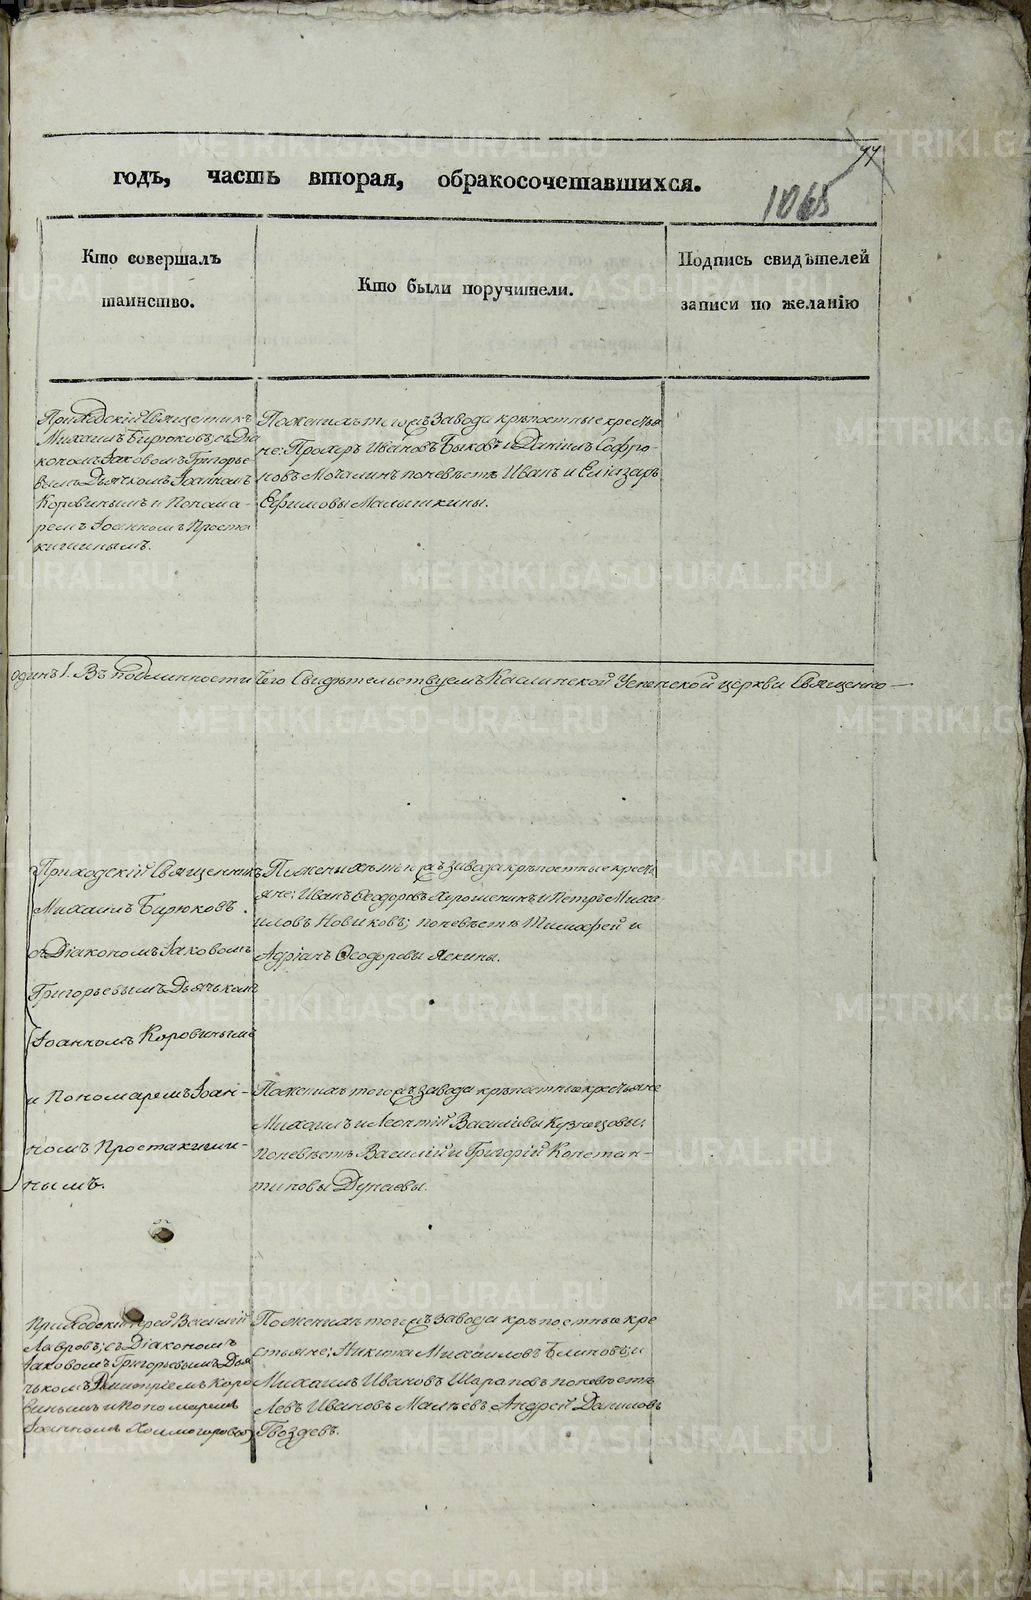 77
годъ, часть вторая, обракосочетавшихся.
1065
Кто совершалъ
таинство.
Кто были поручители.
Подпись свидѣтелей
записи по желанію
Приходскій Священникъ
Михаилъ Бирюковъ, съ Діа
кономъ Іаковомъ Григорье
вымъ Дьячкомъ Іоанномъ
Коровинымъ и Понома-
ремъ Іоанномъ Проста
кишинымъ.
По женихѣ тогожъ завода крѣпостные крестья
не: Прохоръ Ивановъ Быковъ и Даніилъ Софро-
новъ Мочалинъ по невѣстѣ Иванъ и Еліазаръ
Ефимовы Малышкины.
одинъ 1. Въ подлинности сего Свидѣтельствуемъ Каслинской Успенской церкви Священно-
Приходскій Священникъ
Михаилъ Бирюковъ
съ Діакономъ Іаковомъ
Григорьевымъ Дьячькомъ
Іоанномъ Коровинымъ
и Пономаремъ Іоан-
номъ Простакиши-
нымъ.
По женихѣ тогожъ завода крѣпостные кресть
яне: Иванъ Ѳеодоровъ и Петръ Миха
иловъ Новиковъ; по невѣстѣ Тимофей и
Адріанъ Ѳеодоровы Яскины.
По женихѣ тогожъ завода крѣпостные крестьяне
Михаилъ и Леонтій Васильевы Кузнецовы,
по невѣстѣ Василій и Григорій Констан-
тиновы Дунаевы.
Приходскій Іерей Василій
Лавровъ; съ Діакономъ
Іаковомъ Григорьевымъ Дья
чькомъ Димитріемъ Коро
винымъ и Пономаремъ
Іоанномъ Холмогоровымъ
По женихѣ тогожъ завода крѣпостные кре
стьяне: Никита Михаиловъ Блиновъ, и
Михаилъ Ивановъ Шараповъ по невѣстѣ
Левъ Ивановъ Малѣевъ Андрей Даниловъ
Гвоздевъ.
METRIKI.GASO-URAL.RU